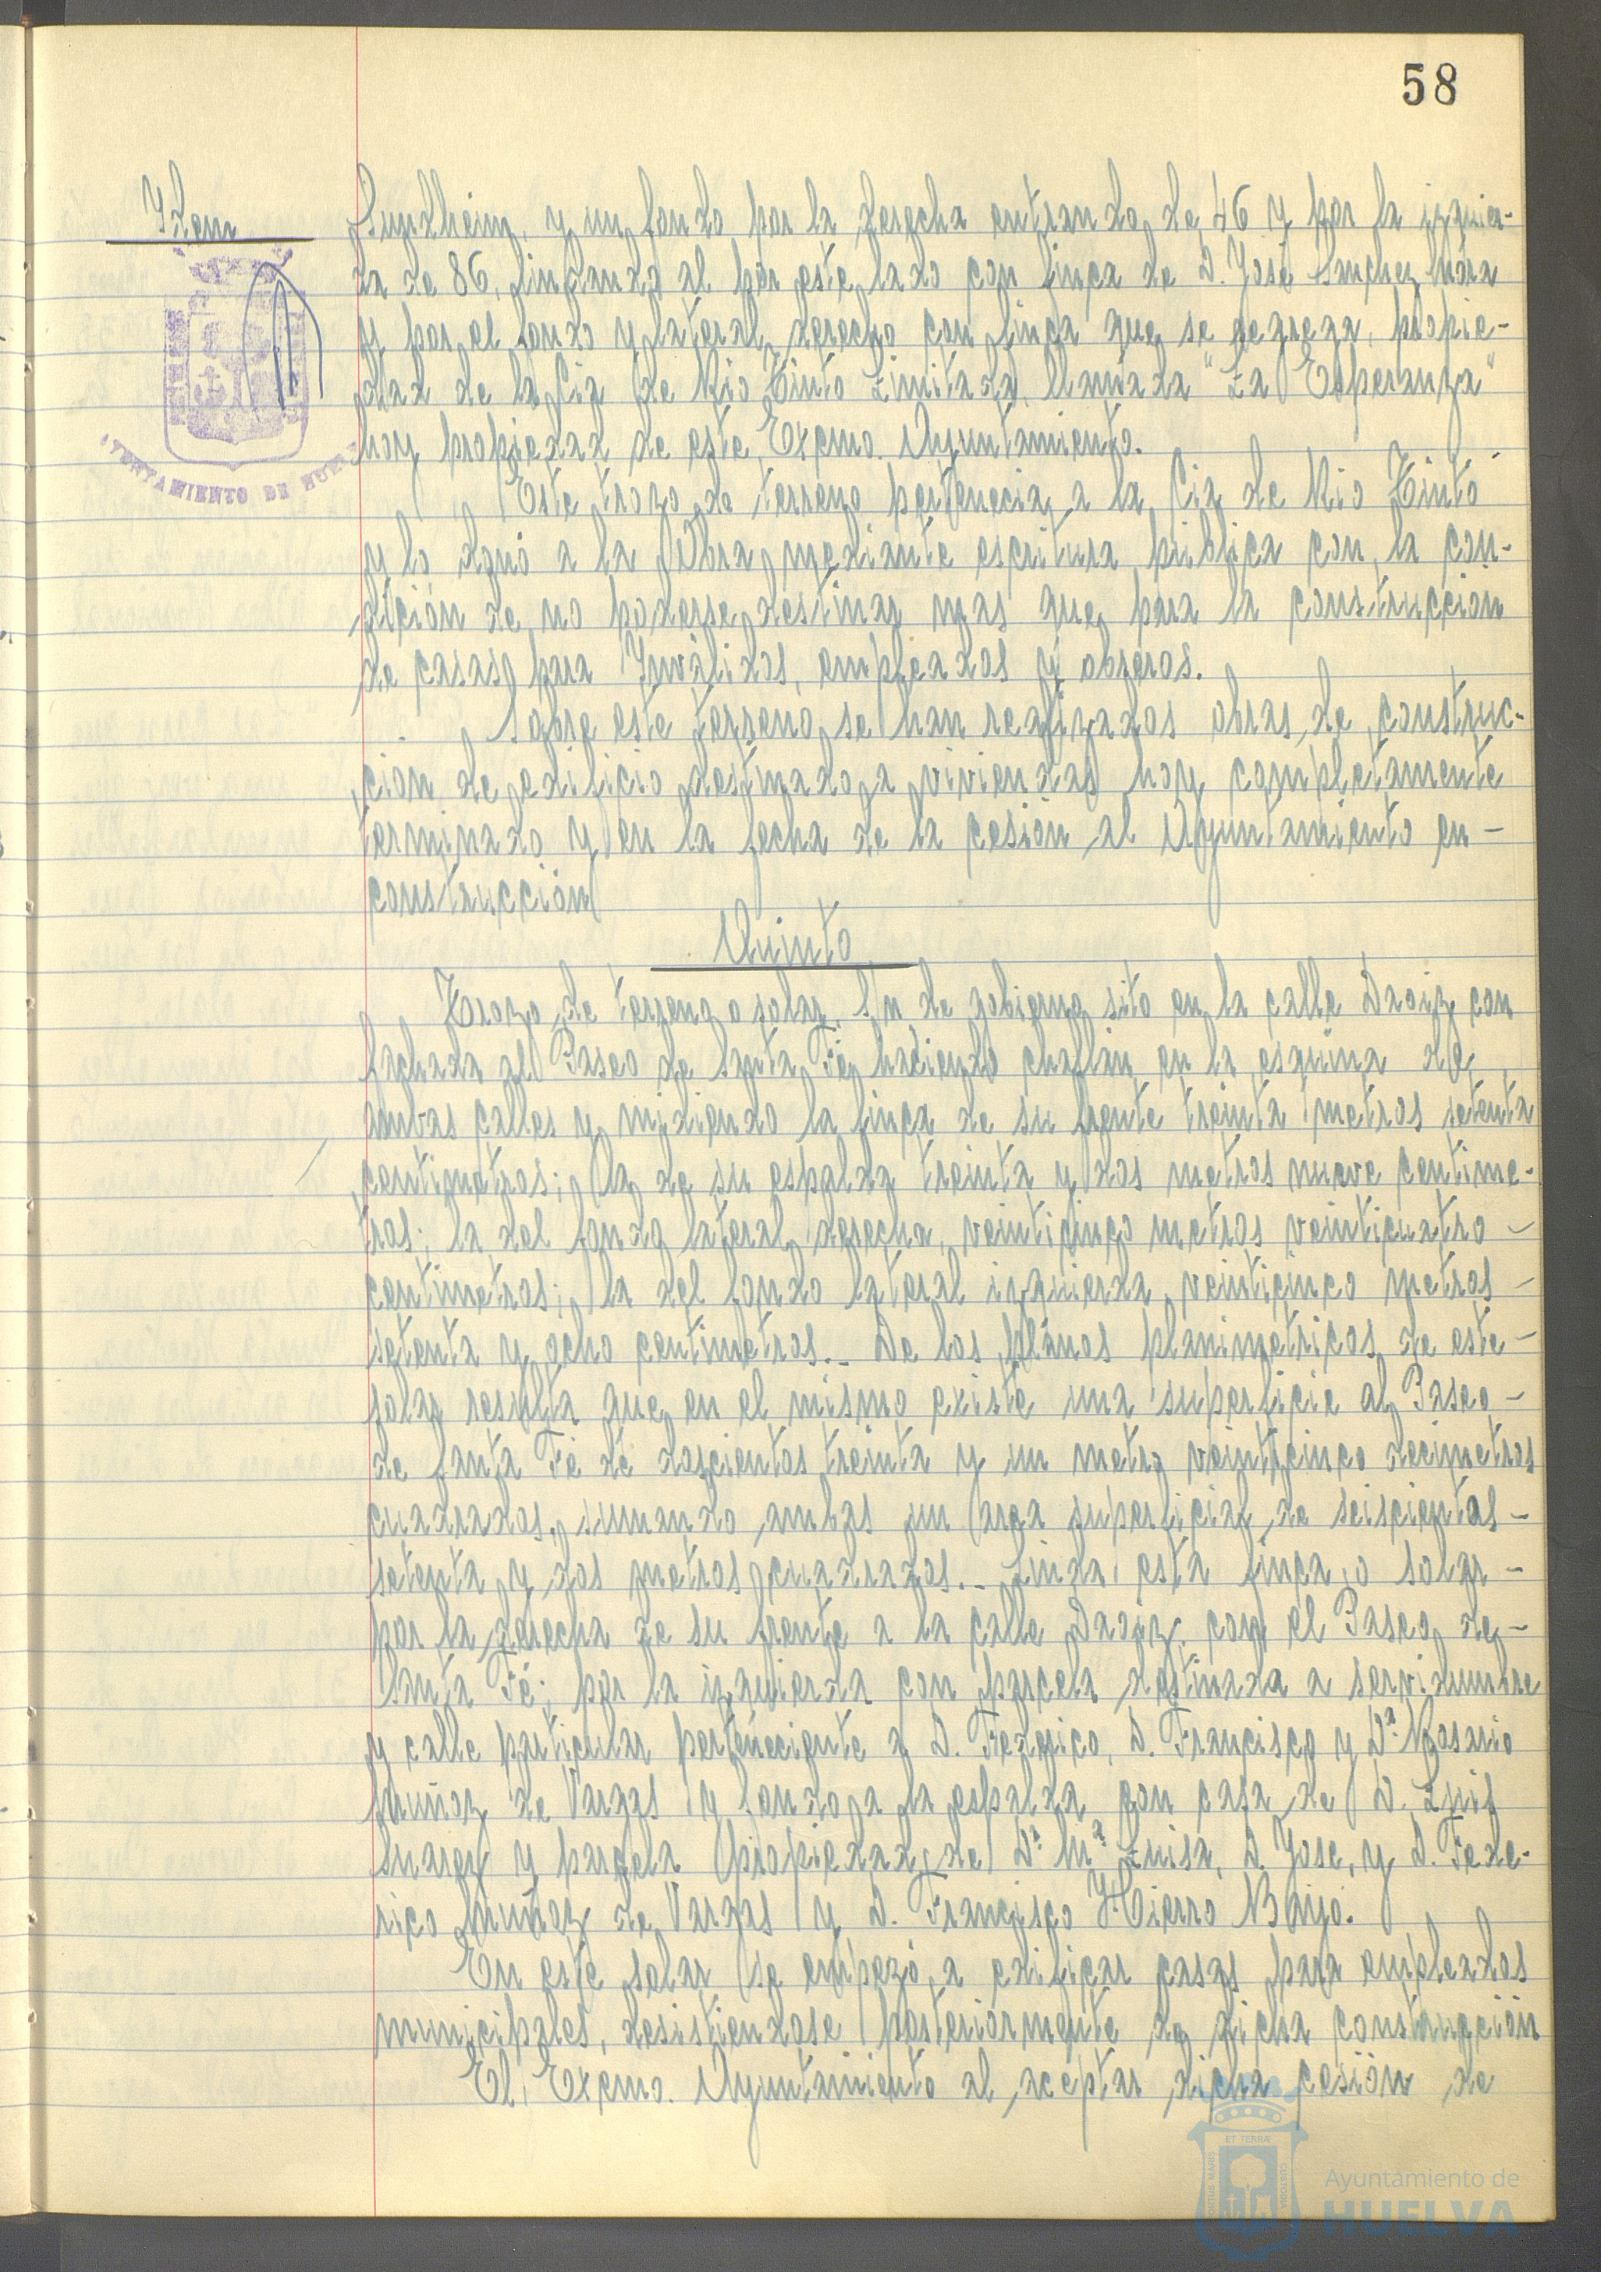 58
Ydem
Sundheim, y un fondo por la derecha entrando de 46 y por la izquier-
da de 86, lindando al por este lado con finca de D. José Sanchez Mora
y por el fondo y lateral derecho con finca que se segrega, propie-
dad de la Cia de Rio Tinto Limitada, llamada "La Esperanza"
hoy propiedad de este Excmo. Ayuntamiento.
Este trozo de terreno pertenecia a la Cia de Rio Tinto
y lo donó a la Obra mediante escritura pública con la con-
dición de no poderse destinar mas que para la construccion
de casas para Ynválidos, empleados y obreros.
Sobre este terreno se han realizados obras de construc-
cion de edificio destinado a viviendas hoy completamente
terminado y en la fecha de la cesión al Ayuntamiento en-
construcción
Quinto
Trozo de terreno o solar, S/n de gobierno sito en la calle Daoiz con
fachada al Paseo de Santa Fé haciendo chaflán en la esquina de
ambas calles y midiendo la linea de su frente treinta metros setenta
centimetros; la de su espalda treinta y dos metros nueve centime-
tros; la del fondo lateral derecha, veinticinco metros veinticuatro -
centimetros; la del fondo lateral izquierda veinticinco metros -
setenta y ocho centimetros.- De los planos planimetricos de este -
solar resulta que en el mismo existe una superficie al Paseo -
de Santa Fé de doscientos treinta y un metro veinticinco decimetros
cuadrados, sumando ambas un area superficial de seiscientas -
setenta y dos metros cuadrados.- Linda esta finca o solar -
por la derecha de su frente a la calle Daoiz, con el Paseo de -
Santa Fé; por la izquierda con parcela destinada a servidumbre
y calle particular perteneciente a D. Federico, D. Francisco y Dª Rosario
Muñoz de Vargas y fondo a la espalda con casa de D. Luis
Suarez y parcela propiedad de Dª Mª Luisa, D. Jose, y D. Fede-
rico Muñoz de Vargas y D. Francisco Hierro
En este solar se empezó a edificar casas para empleados
municipales, desistiendose posteriormente de dicha construcción
El Excmo. Ayuntamiento al aceptar dicha cesión de
AYUNTAMIENTO DE HUELVA
Ayuntamiento de
HUELVA